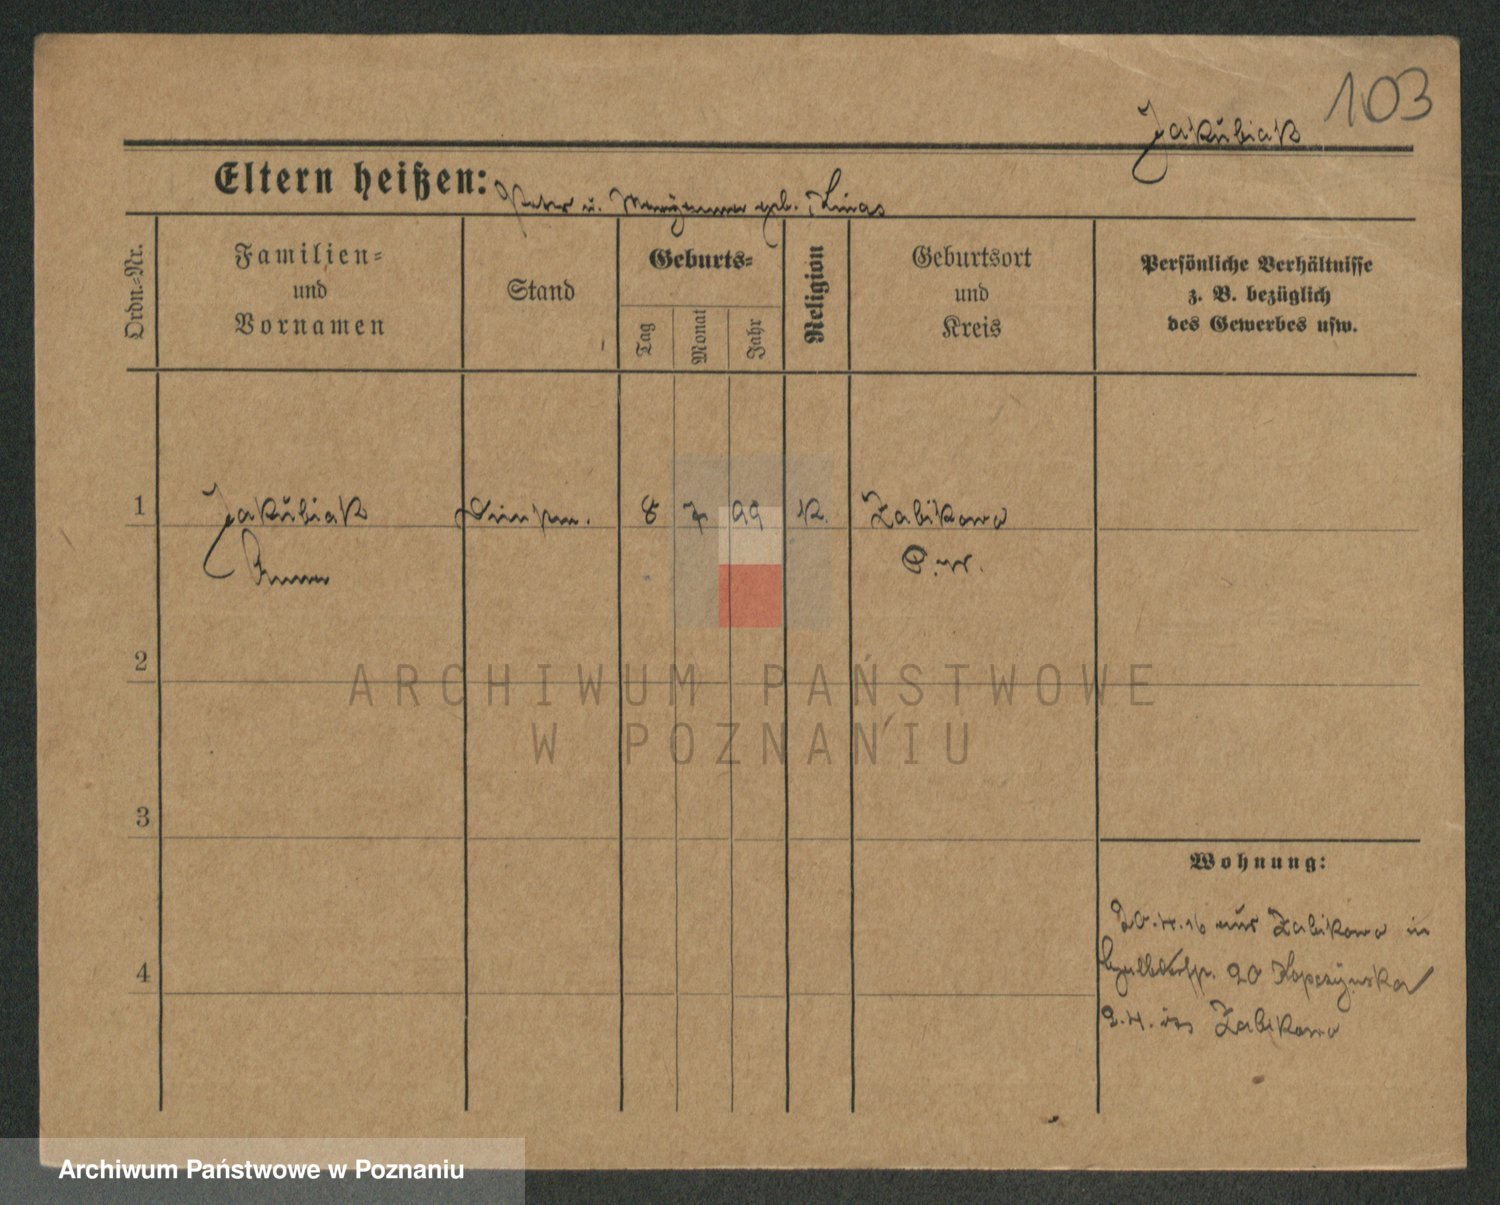 103
Jakubiak
Eltern heißen: Peter u. geb.
Ordn.-Nr.
Familien-
und
Vornamen
Stand
Geburts-
Tag
Monat
Jahr
Religion
Geburtsort
und
Kreis
Persönliche Verhältnisse
z. B. bezüglich
des Gewerbes usw.
1 Jakubiak 8 7 99 K. Zabikowo
Anna P. W.
2
3
4
Wohnung:
20.4.16 aus Zabikowo in
20 Kopczynska
Zabikowo
ARCHIWUM PAŃSTWOWE
W POZNANIU
Archiwum Państwowe w Poznaniu